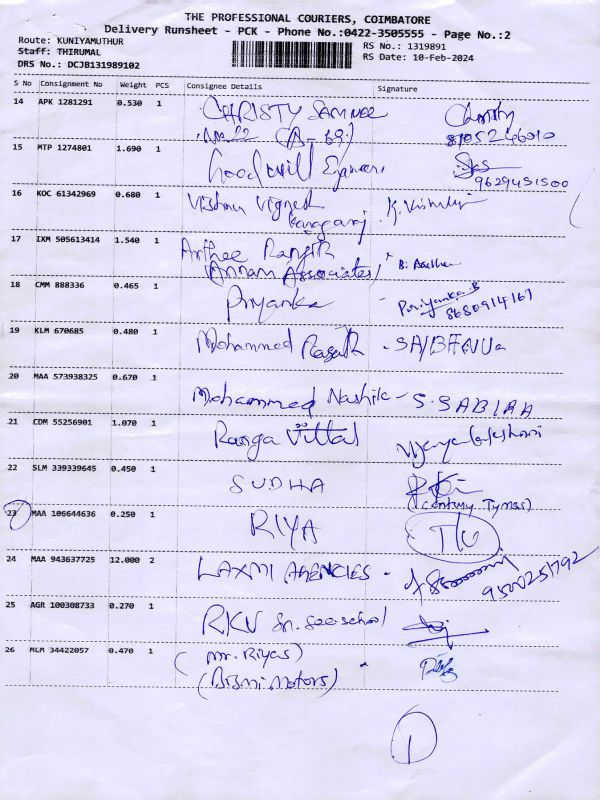 THE PROFESSIONAL COURIERS, COIMBATORE
Delivery Runsheet - PCK - Phone No.:0422-3505555 - Page No.:2
Route: KUNIYAMUTHUR
Staff: THIRUMAL
DRS No.: DCJB131989102
RS No.: 1319891
RS Date: 10-Feb-2024
S No Consignment No Weight PCS Consignee Details Signature
14 APK 1281291 0.530 1 CHRISTY Christy
8705246010
15 MTP 1274801 1.690 1 Goodwill
9629451500
16 KOC 61342969 0.680 1 Vishnu Vignesh
Kanagaraj
17 IXM 505613414 1.540 1 Arthee Ranjith
(Annam Associates) B.
18 CMM 888336 0.465 1 Priyanka Periyanka B
8680914167
19 KLM 670685 0.480 1 Mohammed
20 MAA 573938325 0.670 1 Mohammed Nashik - S. SABIRA
21 CDM 55256901 1.070 1 Ranga Vittal
22 SLM 339339645 0.450 1 SUDHA
(Century Tymes)
23 MAA 106644636 0.250 1 RIYA
24 MAA 943637725 12.000 2 LAXMI AGENCIES -
9500251792
25 AGR 100308733 0.270 1 RKV Sr. Sec school
26 MLM 34422057 0.470 1 (Mr. Riyas)
(Bismi Motors)
1